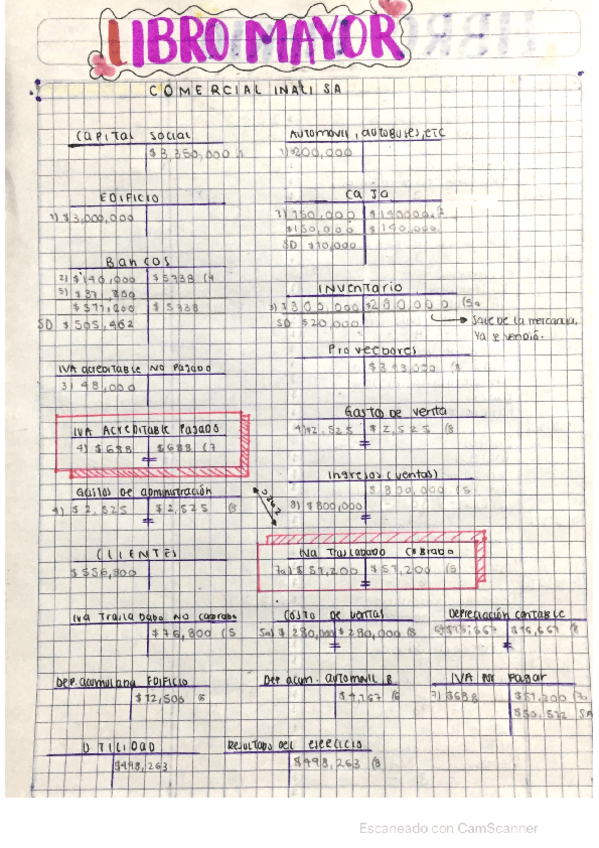 LIBRO MAYOR
COMERCIAL INALI SA
Capital social
$3,350,000
Automovil, autobuses, etc
1) 200,000
EDIFICIO
1) $3,000,000
Caja
1) 150,000 $140000
$150,000 $140,000
SD $10,000
Bancos
2) $140,000 $5738 (4
5) $371,200
$511,200 $5738
SD $505,462
Inventario
3) $300,000 $280,000 (5a
SD $20,000
Sale de la mercancia,
Ya se vendió.
IVA acreditable no pagado
3) 48,000
Proveedores
IVA Acreditable Pagado
4) $688 $688 (7
Gastos de venta
4) $2,525 $2,525 (8
Gastos de administración
4) $2,525 $2,525 (8
Ingresos (ventas)
$800,000 (5
8) $800,000
CLIENTES
$556,800
Iva Trasladado Cobrado
7a) $51,200 $51,200 (5
Iva Trasladado no cobrado
$76,800 (5
Costo de ventas
5a) $280,000 $280,000 (8
Depreciación contable
Dep. acumulada EDIFICIO
$12,500 (6
Dep acum. automovil
$4,167 (6
IVA por pagar
7) $688 $51,200 (7a
UTILIDAD
$498,263
Resultado del ejercicio
$498,263 (8
Escaneado con CamScanner